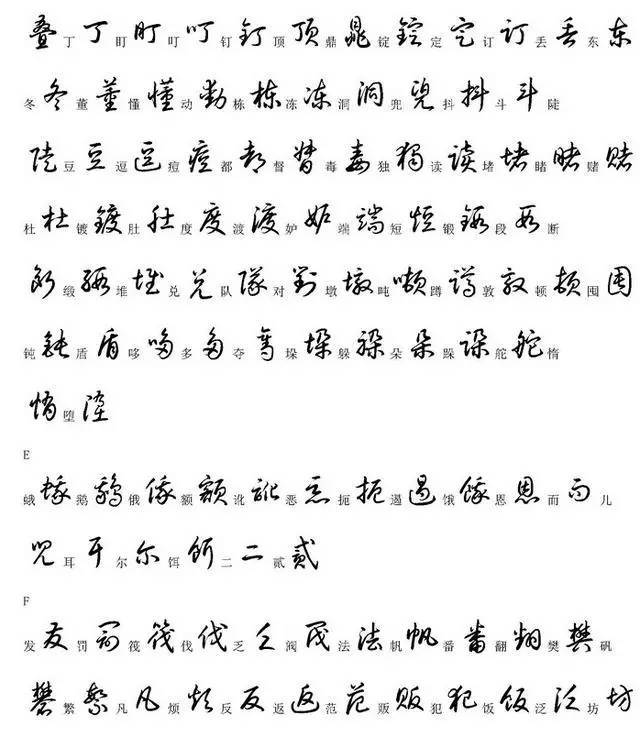 叠 丁 丁 盯 盯 叮 叮 钉 钉 顶 顶 鼎 鼎 锭 锭 定 定 订 订 丢 丢 东 东
冬 冬 董 董 懂 懂 动 动 栋 栋 冻 冻 洞 洞 兜 兜 抖 抖 斗 斗 陡
陡 豆 豆 逗 逗 痘 痘 都 都 督 督 毒 毒 独 獨 读 读 堵 堵 睹 睹 赌 赌
杜 杜 镀 镀 肚 肚 度 度 渡 渡 妒 妒 端 端 短 短 锻 锻 段 段 断
断 缎 缎 堆 堆 兑 兑 队 隊 对 對 墩 墩 吨 噸 蹲 蹲 敦 敦 顿 顿 囤 囤
钝 钝 盾 盾 哆 哆 多 多 夺 奪 垛 垛 躲 躲 朵 朵 跺 跺 舵 舵 惰
惰 堕 堕
E
蛾 蛾 鹅 鹅 俄 俄 额 额 讹 讹 恶 恶 扼 扼 遏 遏 饿 饿 恩 恩 而 而 儿
兒 耳 耳 尔 尔 饵 饵 二 二 贰 貳
F
发 发 罚 罚 筏 筏 伐 伐 乏 乏 阀 阀 法 法 帆 帆 番 番 翻 翻 樊 樊 矾
礬 繁 繁 凡 凡 烦 烦 反 反 返 返 范 范 贩 贩 犯 犯 饭 饭 泛 泛 坊 坊